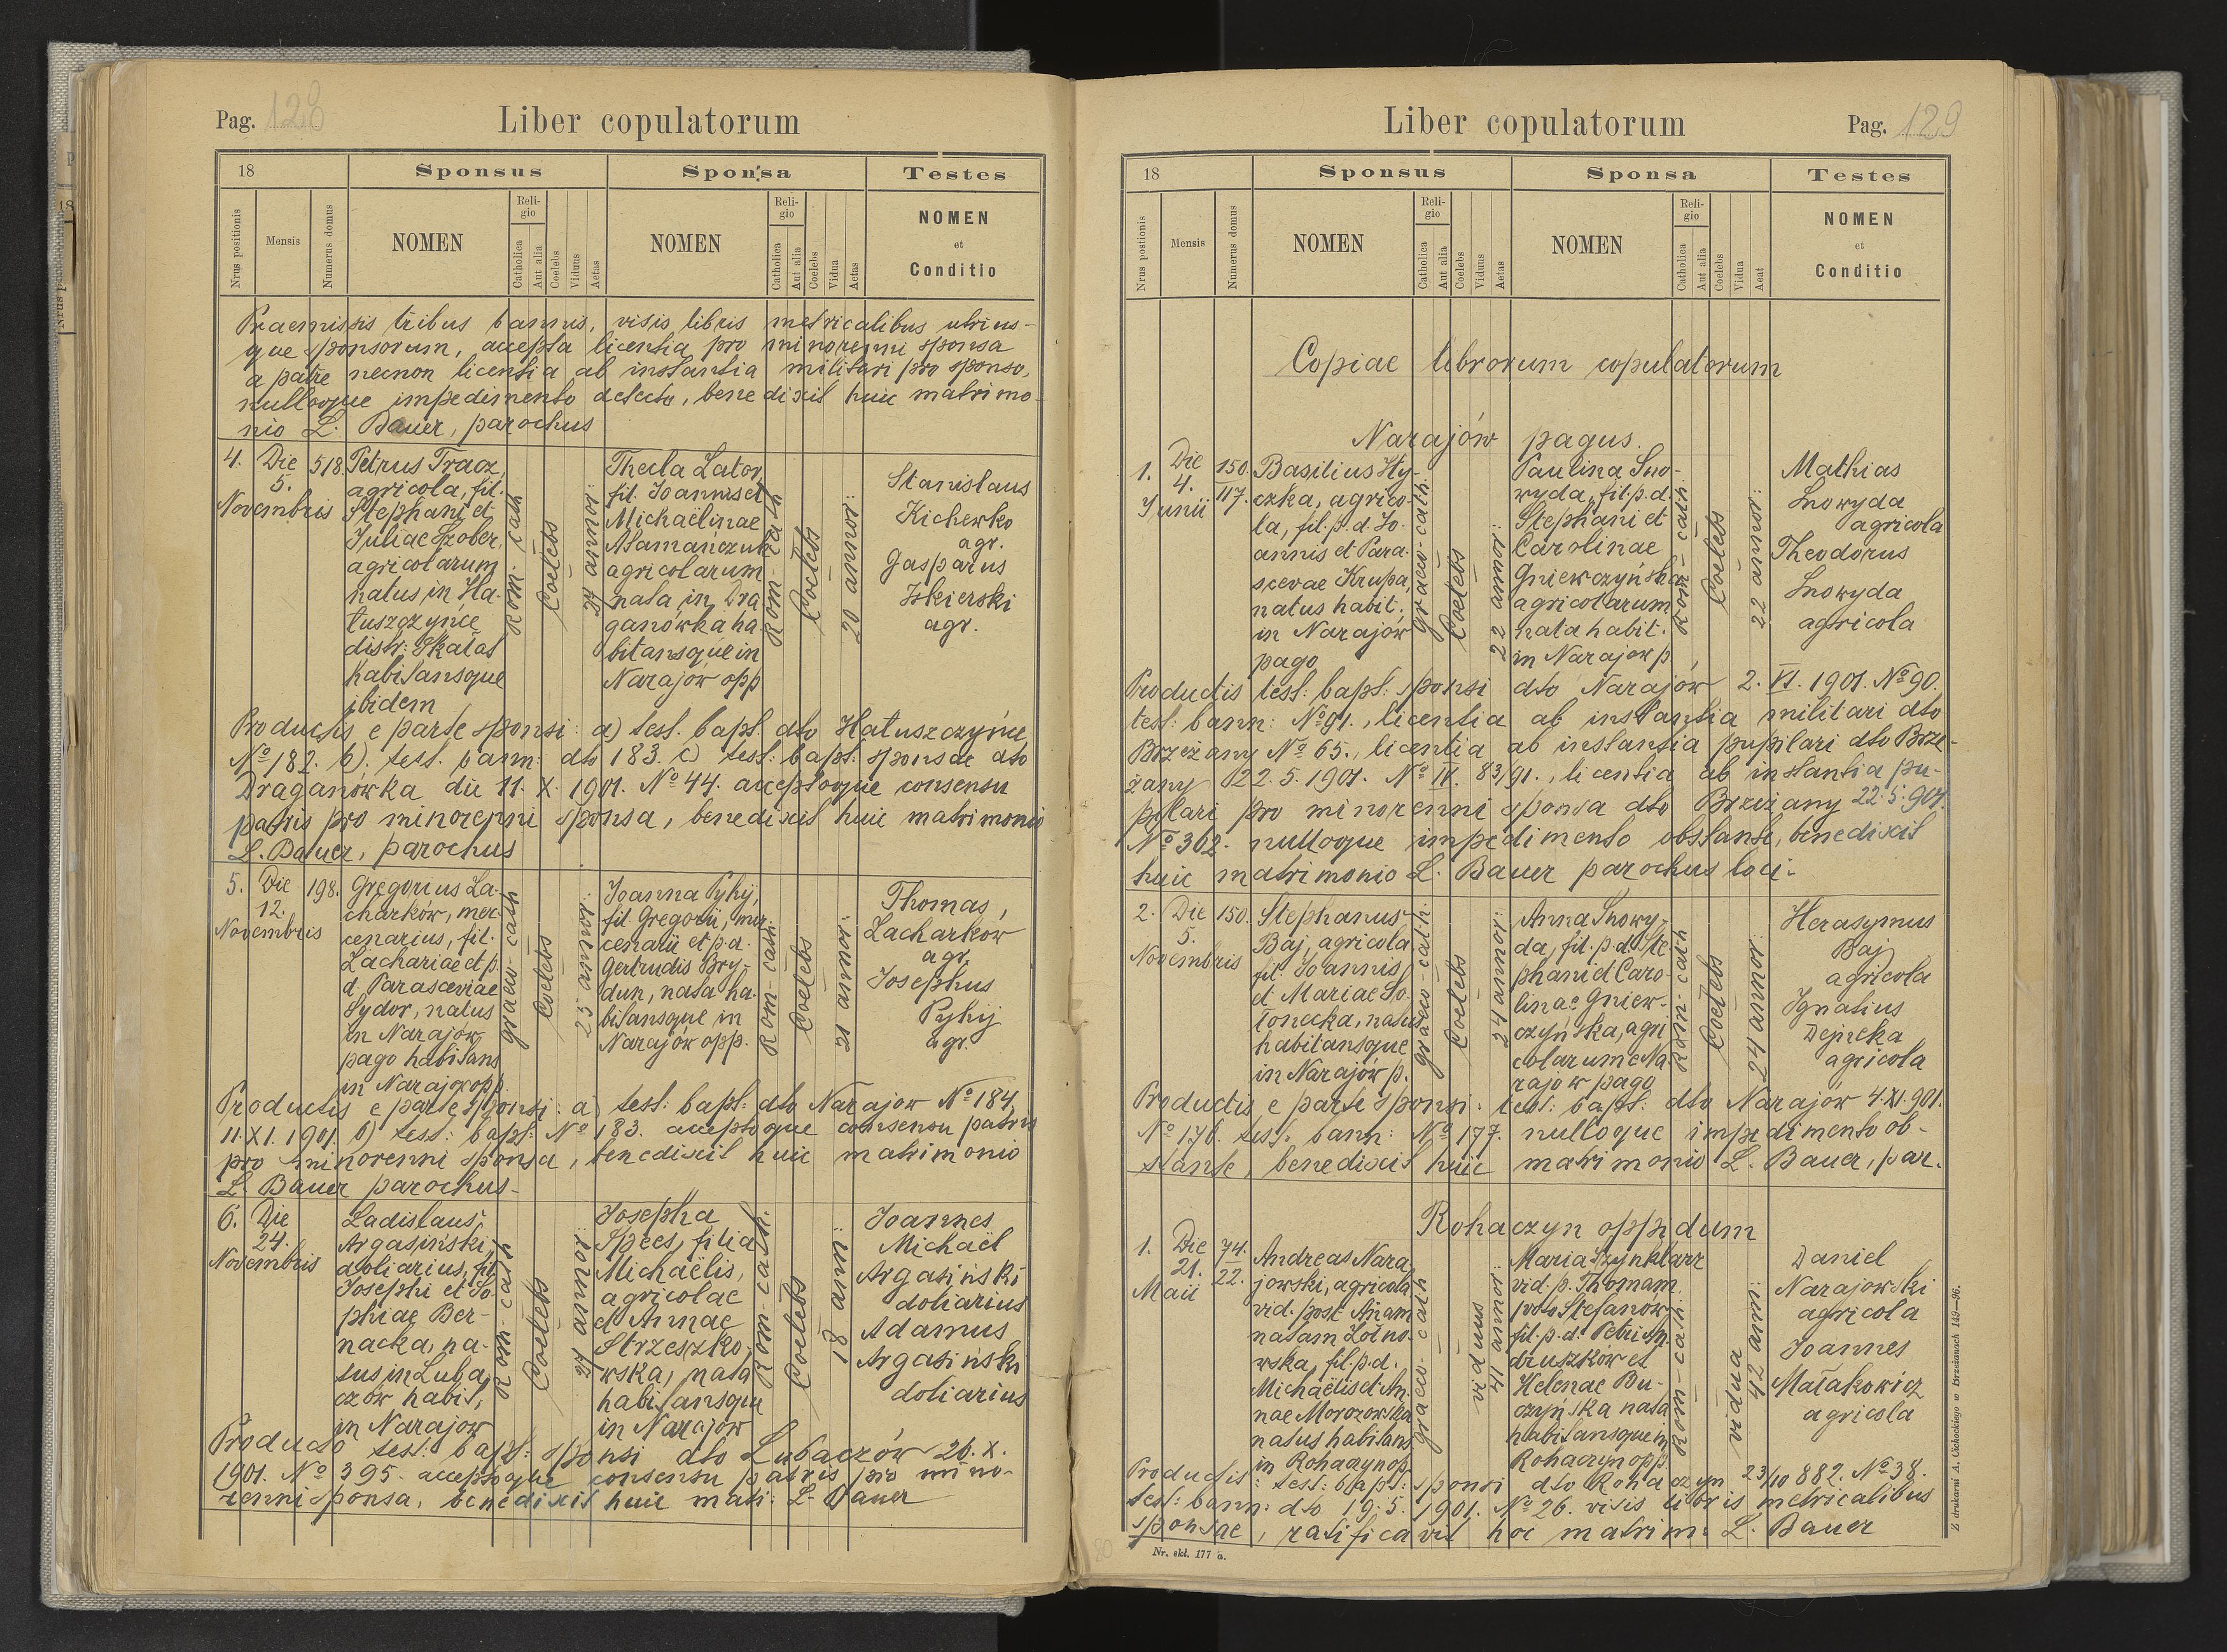 Pag. 128
Liber copulatorum
18
Sponsus
Sponsa
Testes
Nrus positionis
Mensis
Numerus domus
NOMEN
Religio
Catholica
Aut alia
Coelebs
Viduus
Aetas
NOMEN
Religio
Catholica
Aut alia
Coelebs
Vidua
Aetas
NOMEN
et
Conditio
Praemissis tribus bannis, visis libris metricalibus utrius-
que sponsorum, accepta licentia pro minorenni sponsa
a patre necnon licentia ab instantia militari pro sponso,
nulloque impedimento detecto, benedixit huic matrimo-
nio L. Bauer, parochus
4.
Die
5.
Novembris
518.
Petrus Tracz,
agricola, fil.
Stephani et
Juliae Szober,
agricolarum
natus in Ha-
łuszczyńce
distr: Skałat
habitansque
ibidem
Rom-cath
Coelebs
24 annor:
Thecla Lator,
fil. Joannis et
Michaëlinae
Atamańczuk
agricolarum
nata in Dra
ganówka ha
bitansque in
Narajów opp
Rom-cath
Coelebs
20 annor:
Stanislaus
Kicherko
agr.
Gasparus
Iskierski
agr.
Productis e parte sponsi: a) test. bapt. dto Hałuszczyńce
№ 182. b). test. bann: dto 183. c) test: bapt: sponsae dto
Draganówka die 11. X. 1901. № 44. acceptoque consensu
patris pro minorenni sponsa, benedixit huic matrimonio
L. Bauer, parochus
5.
Die
12.
Novembris
198.
Gregorius La-
charków, mer-
cenarius, fil.
Zachariae et p.
d. Parasceviae
Sydor, natus
in Narajów
pago habitans
in Narajow opp.
graeco-cath
Coelebs
23 annor:
Joanna Pyhij,
fil Gregorii, mer
cenarii et p.d.
Gertrudis Bry-
dun, nata ha-
bitansque in
Narajów opp.
Rom-cath:
Coelebs
18 annor:
Thomas,
Zacharkow
agr.
Josephus
Pyhij
agr.
Productis e parte sponsi: a) test: bapt: dto Narajow № 184,
11. XI. 1901. b) test: bapt: № 183. acceptoque consensu patris
pro minorenni sponsa, benedixit huic matrimonio
L. Bauer parochus-
6.
Die
24.
Novembris
Ladislaus,
Argasiński,
doliarius, fil.
Josephi et So
phiae Ber-
nacka, na-
tus in Luba
czów habit,
in Narajow
Rom-cath
Coelebs
24 annor:
Josepha
Specs, filia
Michaëlis,
agricolae
et Annae
Strzeszko-
wska, nata
habitansque
in Narajów
Rom-cath.
Coelebs
18 anni:
Joannes
Michaël
Argasiński
doliarius
Adamus
Argasiński
doliarius
Producto test: bapt: sponsi dto Lubaczów 26. X.
1901. № 395. acceptoque consensu patris pro mino-
renni sponsa, benedixit huic matr: L. Bauer
Liber copulatorum
Pag. 129
18
Sponsus
Sponsa
Testes
Nrus postionis
Mensis
Numerus domus
NOMEN
Religio
Catholica
Aut alia
Coelebs
Viduus
Aetas
NOMEN
Religio
Catholica
Aut alia
Coelebs
Vidua
Aeat
NOMEN
et
Conditio
Copiae librorum copulatorum
Narajów pagus.
1.
Die
4.
Junii
150.
117.
Basilius Hy-
czka, agrico-
la, fil. p. d. Jo-
annis et Para-
scevae Krupa,
natus habit.
in Narajów
pago
graeco-cath.
Coelebs
22 annor:
Paulina Sno-
wyda, fil. p.d.
Stephani et
Carolinae
Gniewczyńska
agricolarum
nata habit.
in Narajow p
Rom-cath
Coelebs
22 annor:
Mathias
Snowyda
agricola
Theodorus
Snowyda
agricola
Productis test: bapt: sponsi dto Narajów 2. VI. 1901. № 90.
test: bann: № 91., licentia ab instantia militari dto
Brzeżany № 65., licentia ab instantia pupilari dto Brze-
żany 22. 5. 1901. № IV. 83/91., licentia ab instantia pu-
pilari pro minorenni sponsa dto Brzeżany 22. 5. 901.
№ 362. nulloque impedimento obstante, benedixit
huic matrimonio L. Bauer parochus loci-
2.
Die
5.
Novembris
150.
Stephanus
Baj, agricola
fil. Joannis
et Mariae So
łonecka, natus
habitansque
in Narajów p.
graeco-cath.
Coelebs
24 annor:
Anna Snowy-
da, fil. p.d. Ste
phani et Caro-
linae Gniew-
czyńska, agri
colarum e Na-
rajow pago
Rom-cath
Coelebs
24 annor:
Herasymus
Baj
agricola
Ignatius
Dejneka
agricola
Productis e parte sponsi: test: bapt: dto Narajów 4. XI. 901.
№ 176. test. bann: № 177. nulloque impedimento ob-
stante, benedixit huic matrimonio L. Bauer, par.
Rohaczyn oppidum
1.
Die
21.
Maii
74.
22.
Andreas Nara
jowski, agricola
vid. post Annam
natam Żołno-
wska, fil. p.d.
Michaëlis et An.
nae Morozowska
natus habitans
in Rohaczyn op.
graeco-cath
viduus
41 annor:
Maria Szynklarz
vid. p. Thomam
proto Stefanów,
fil. p. d. Petri An-
druszków et
Helenae Bu-
czyńska nata
habitansque in
Rohaczyn opp.
Rom-cath.
vidua
42 anni:
Daniel
Narajowski
agricola
Joannes
Małakowicz
agricola
Productis: test: bapt: sponsi dto Rohaczyn 23/10 882. № 38.
test: bann: dto 19. 5. 1901. № 26. visis libris metricalibus
sponsae, ratificavit hoc matrim: L. Bauer
Nr. skł. 177 a.
Z drukarni A. Cichockiego w Brzeżanach 149—96.